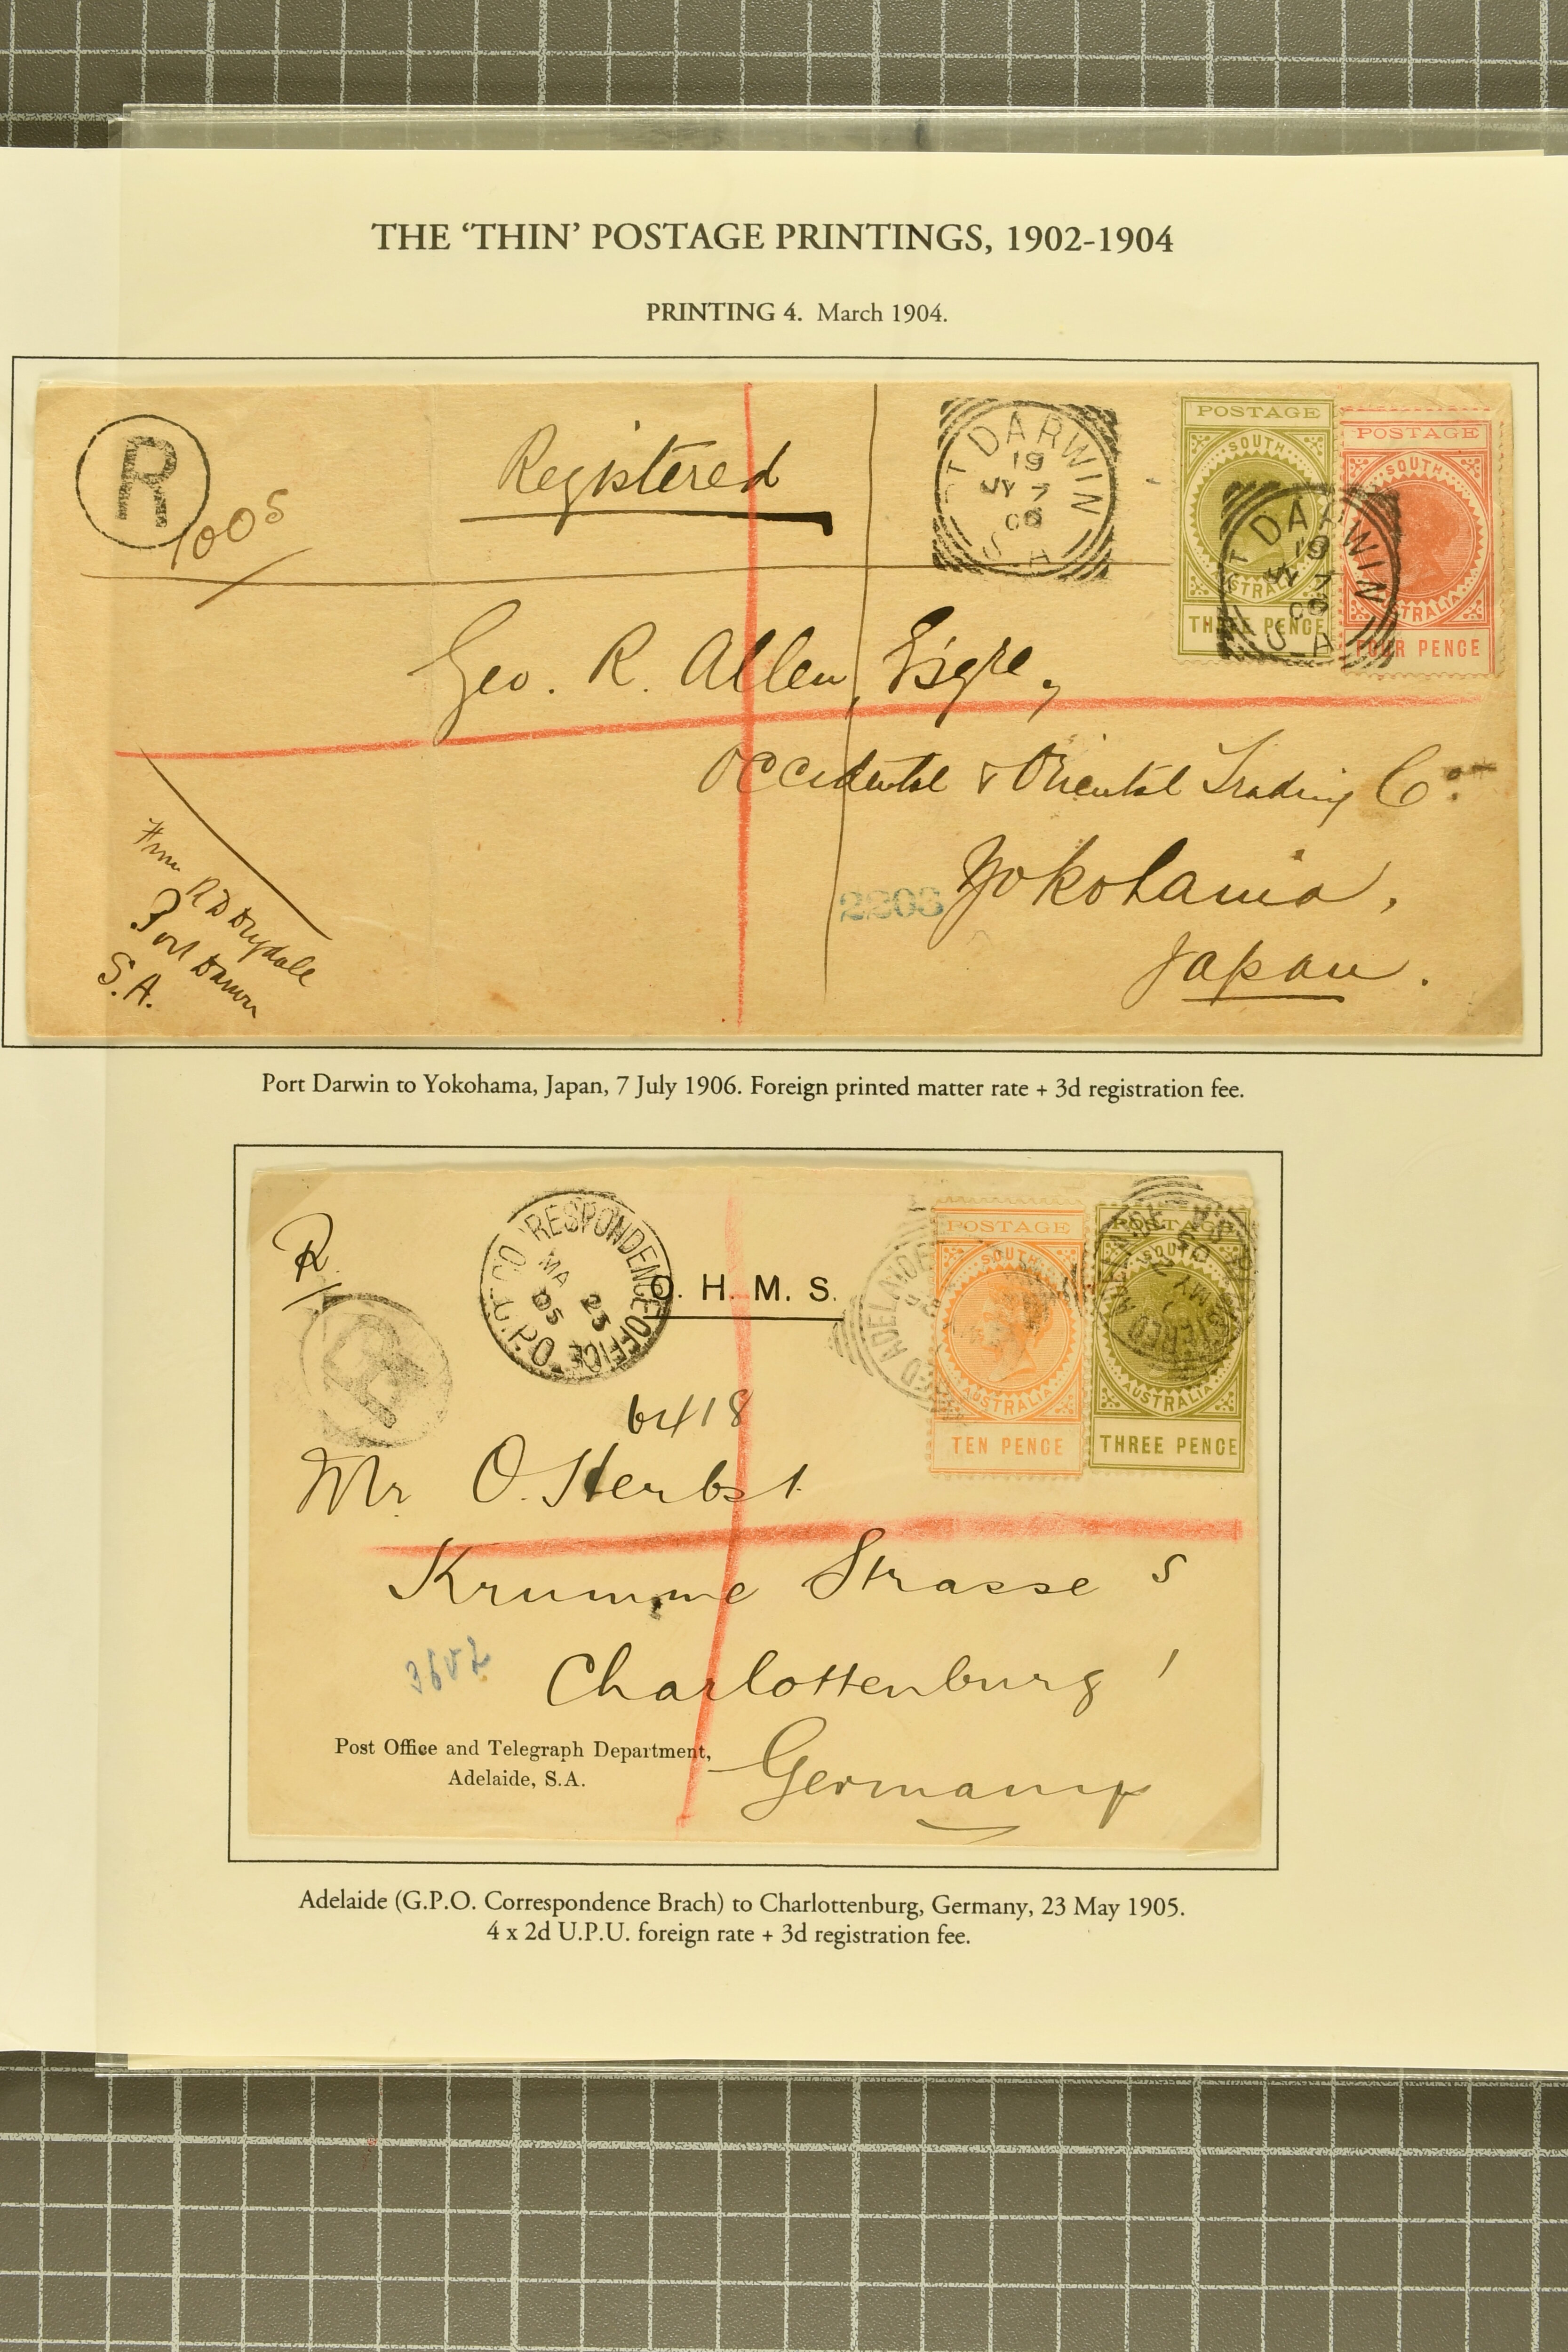 THE ‘THIN’ POSTAGE PRINTINGS, 1902-1904
PRINTING 4. March 1904.
R
1005
Registered
PT DARWIN
19
JY 7
06
S.A
POSTAGE
SOUTH
AUSTRALIA
THREE PENCE
POSTAGE
SOUTH
AUSTRALIA
FOUR PENCE
PT DARWIN
19
JY 7
06
S.A
Geo. R. Allen, Esqre,
Occidental & Oriental Trading Co.
Yokohama,
Japan.
2303
From
R D Drydale
Port Darwin
S.A.
Port Darwin to Yokohama, Japan, 7 July 1906. Foreign printed matter rate + 3d registration fee.
R
R
CORRESPONDENCE OFFICE
MA 23
05
G.P.O
O. H. M. S.
POSTAGE
SOUTH
AUSTRALIA
TEN PENCE
POSTAGE
SOUTH
AUSTRALIA
THREE PENCE
6418
Mr O. Herbst
Krumme Strasse
Charlottenburg
Germany
Post Office and Telegraph Department,
Adelaide, S.A.
Adelaide (G.P.O. Correspondence Brach) to Charlottenburg, Germany, 23 May 1905.
4 x 2d U.P.U. foreign rate + 3d registration fee.